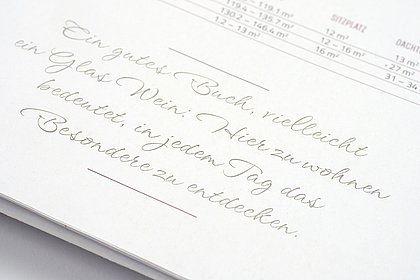 119.4 – 135.7 m²
130.2 – 146.4 m²
12 – 13 m²
SITZPLATZ
12 m²
12 – 16 m²
16 m²
13 m²
31 – 34
Ein gutes Buch, vielleicht
ein Glas Wein: Hier zu wohnen
bedeutet, in jedem Tag das
Besondere zu entdecken.